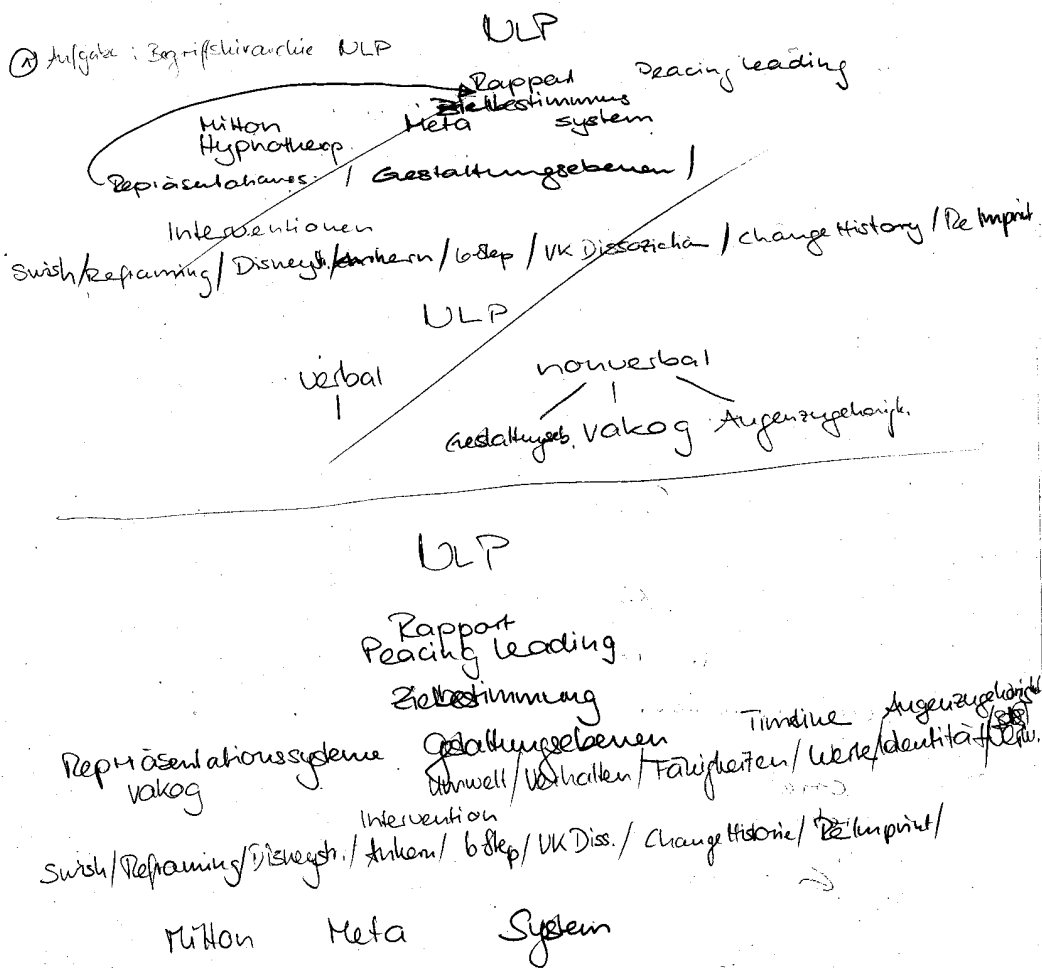 NLP
① Aufgabe : Begriffshirarchie NLP
Rapport Peacing leading
Zielbestimmung
Milton Meta System
Hypnotherap.
Repräsentationss. / Gestaltungsebenen /
Interventionen
Swish/Reframing/Disneystr./Ankern/6 Step/VK Dissoziation/Change History/Re Imprint
NLP
verbal nonverbal
Gestaltungseb. Vakog Augenzugehörigk.
NLP
Rapport
Peacing leading
Zielbestimmung
Timeline Augenzugehörigk
Repräsentationssysteme Gestaltungsebenen
vakog Umwelt/Verhalten/Fähigkeiten/Werte/Identität/
Intervention
Swish/Reframing/Disneystr./Ankern/6 Step/VK Diss./Change Historie/Re Imprint/
Milton Meta System